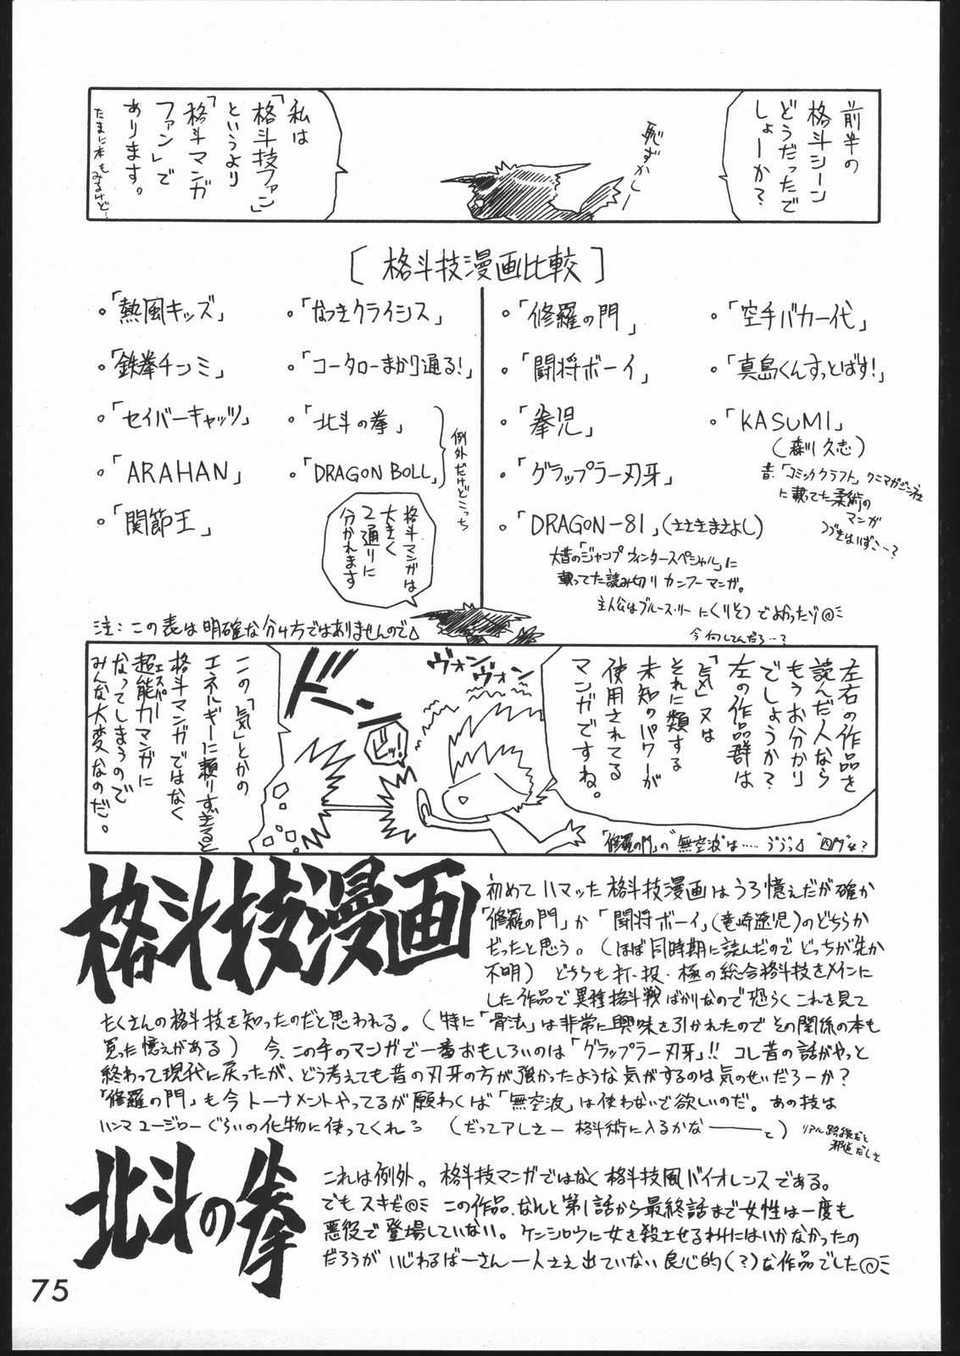 前半の
格斗シーン
どうだったで
しょーか?
恥ずかしー
私は
「格斗技ファン」
というより
「格斗マンガ
ファン」で
あります。
たまに本もみるけど…
[格斗技漫画比較]
・「熱風キッズ」
・「なつきクライシス」
・「鉄拳チンミ」
・「コータローまかり通る!」
・「セイバーキャッツ」
・「北斗の拳」
・「ARAHAN」
・「DRAGON BOLL」
例外だけどこっち
・「関節王」
・「修羅の門」
・「空手バカ一代」
・「闘将ボーイ」
・「真島くんすっとばす!」
・「拳児」
・「KASUMI」
(森川久志)
昔、「コミッククラフト」クニマガジン社
に載ってた柔術の
マンガ
つづきはいずこ…?
・「グラップラー刃牙」
・「DRAGON-81」(ささきまさよし)
大昔の「ジャンプウィンタースペシャル」に
載ってた読み切りカンフーマンガ。
主人公はブルース・リーにくりそつでよかったゾ
今何してんだろ…?
格斗マンガは
大きく
2通りに
分かれます
注:この表は明確な分け方ではありませんので
左右の作品を
読んだ人なら
もうお分かり
でしょうか?
左の作品群は
「気」又は
それに類する
未知のパワーが
使用されてる
マンガですね。
「修羅の門」の“無空波”は……
ヴォン
ヴォン
ドン
ビッ!
この「気」とかの
エネルギーに頼りすぎると
格斗マンガではなく
超能力マンガに
エスパー
なってしまうので
みんな大変なのだ。
格斗技漫画
初めてハマッた格斗技漫画はうろ憶えだが確か
「修羅の門」か「闘将ボーイ」(竜崎遼児)のどちらか
だったと思う。(ほぼ同時期に読んだのでどっちが先か
不明)どちらも打・投・極の総合格斗技をメインに
した作品で異種格斗戦ばかりなので恐らくこれを見て
たくさんの格斗技を知ったのだと思われる。(特に「骨法」は非常に興味を引かれたのでその関係の本も
買った憶えがある)今、この手のマンガで一番おもしろいのは「グラップラー刃牙」!!コレ昔の話がやっと
終わって現代に戻ったが、どう考えても昔の刃牙の方が強かったような気がするのは気のせいだろーか?
「修羅の門」も今トーナメントやってるが願わくば「無空波」は使わないで欲しいのだ。あの技は
ハンマユージローぐらいの化物に使ってくれ(だってアレさー格斗術に入るかな———と)
北斗の拳
これは例外。格斗技マンガではなく格斗技風バイオレンスである。
でもスキだ この作品、なんと第1話から最終話まで女性は一度も
悪役で登場していない。ケンシロウに女を殺させるわけにはいかなかったの
だろうがいじわるばーさん一人さえ出ていない良心的(?)な作品でした
75